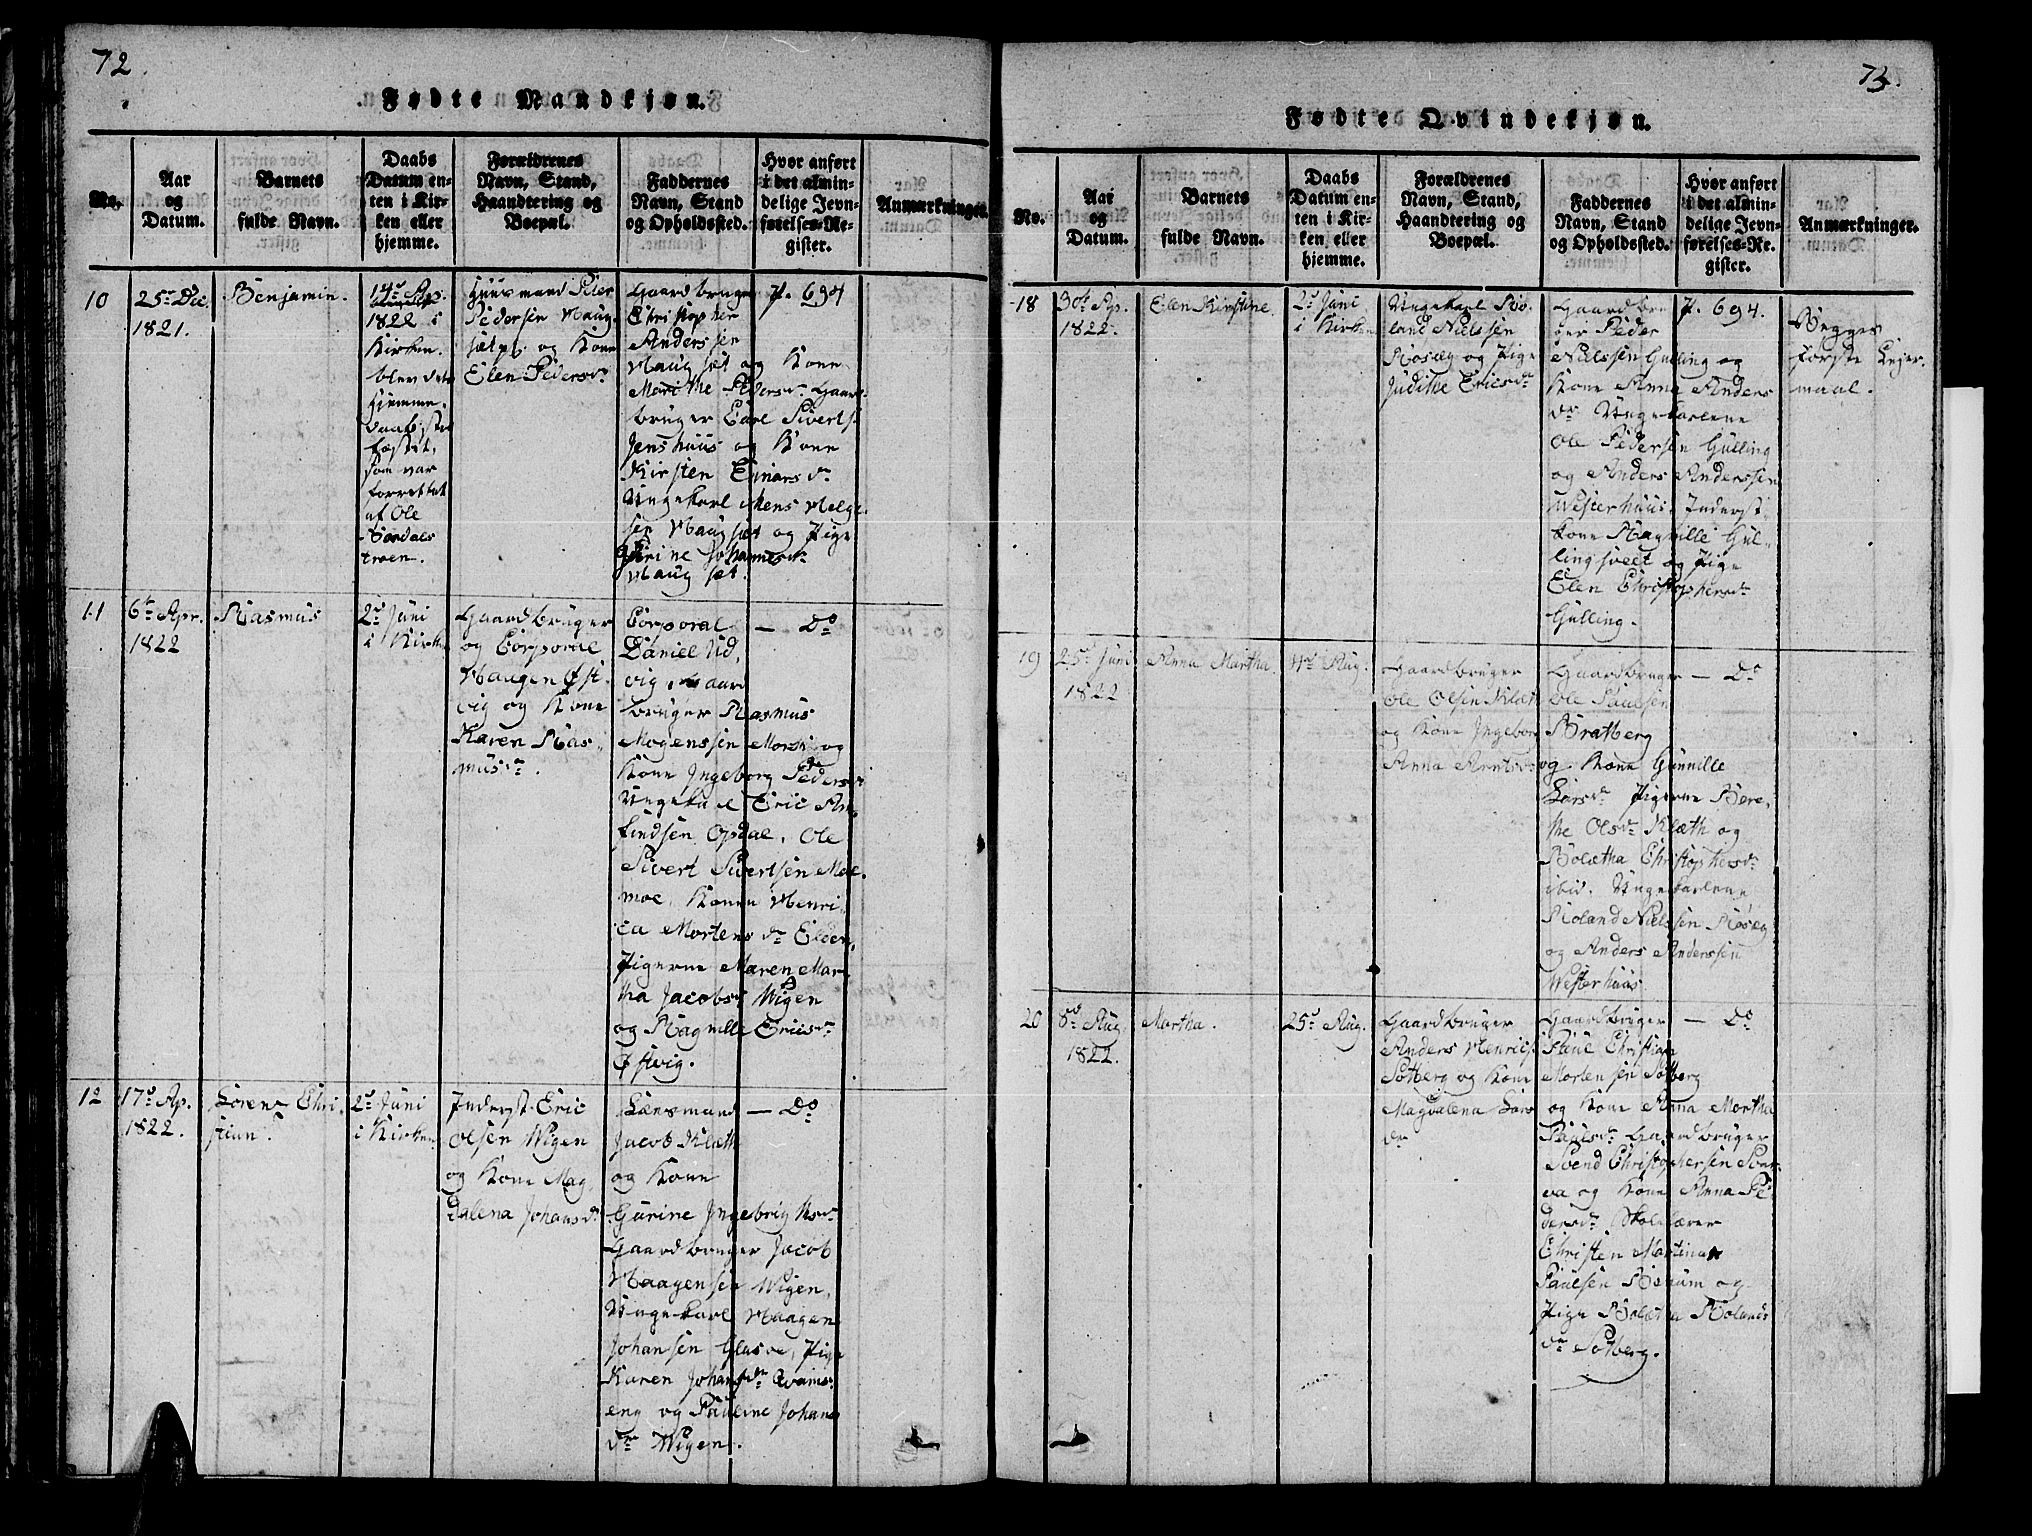 72
Fødte Mandkjøn.
No.
Aar
og
Datum.
Barnets
fulde Navn.
Daabs
Datum en-
ten i Kir-
ken eller
hjemme.
Forældrenes
Navn, Stand,
Haandtering og
Boepæl.
Faddernes
Navn, Stand
og Opholdssted.
Hvor anført
i det almin-
delige Jevn-
førelses-Re-
gister.
Anmærkninger.
10
25de Dec.
1821.
Benjamin.
14de Ap.
1822 i
Kirken.
blev dets
Hjemme-
daab stad
fæstet,
som var
forrettet
af Ole
troen.
Huusmand Peter
Pedersen Haug
sætpl. og Kone
Elen Pedersdr
Gaardbruger
Christopher
Anderssen
Haugsæt og Kone
Marithe Pedersdr. Gaard
bruger Carl Siverts.
Jenshuus og Kone
Kirsten Einarsdr
Ungekarl Mens Helge
sen Haugsæt og Pige
Gurine Johannesdr
Haugsæt.
P. 694
11
6te Apr.
1822
Rasmus
2den Juni
i Kirken
Gaardbruger
og Corporal
Haagen Øst-
vig og Kone
Karen Ras-
musdr.
Corporal
Daniel Ud,
vig, Gaard
bruger Rasmus
Mogenssen Morsi og
Kone Ingeborg Pedersdr
Ungekarl Eric Am
findsen Opdal, Ole
Sivert Sivertsen Mal.
moe, Konen Henri
ca Mortensdr Elden,
Pigerne Maren Mar
tha Jacobsdr Wigen
og Ragnille Ericsdr
Østvig.
— Do
12
17de Ap.
1822.
Sørene Chri-
stian.
2den Juni
i Kirken
Inderst Eric
Olsen Wigen
og Kone Mag
dalena Johansdr
Lænsmand
Jacob Klæth
og Kone
Gurine Ingebrigtsdr
Gaardbruger Jacob
Haagensen Wigen,
Ungekarl Haagen
Johansen Glasøe, Pige
Karen Johansdr Qvams-
eng og Pauline Johans
dr Wigen.
— Do
73.
Fødte Qvindekjøn.
No.
Aar
og
Datum.
Barnets
fulde Navn.
Daabs
Datum en-
ten i Kir-
ken eller
hjemme.
Forældrenes
Navn, Stand,
Haandtering og
Boepæl.
Faddernes
Navn, Stand
og Opholdssted.
Hvor anført
i det almin-
delige Jevn-
førelses-Re-
gister.
Anmærkninger.
18
30te Ap.
1822.
Elen Kirstine.
2den Juni
i Kirken
Ungekarl Ro-
land Nielssen
Rosæg og Pige
Judithe Ericsdr
Gaardbru-
ger Peder
Nielssen Gulling og
Kone Anna Anders
dr Ungekarlene
Ole Pedersen Gulling
og Anders Anderssen
Westerhuus, Inderst
kone Ragnille Gul-
lingsvelt og Pige
Elen Christophersdr
Gulling.
P. 694.
Begges
første Lejer-
maal.
19
25de Juni
1822
Anna Martha
4de Aug.
Gaardbruger
Ole Olsen
og Kone Ingeborg
Anna Arntsdr
Gaardbruger
Ole Paulsen
Bratberg
og Kone Gunnille
Larsdr Pigerne Bere-
the Olsdr Klæth og
Bolætha Christophersdr
ibid. Ungekarlene
Roland Nielssen Rosæg
og Anders Anderssen
Westerhuus
— Do
20
8de Aug.
1822.
Martha.
25de Aug.
Gaardbruger
Anders Henrics.
Sotberg og Kone
Magdalena Lars
dr
Gaardbruger
Paul Christian
Mortensen Sotberg
og Kone Anna Martha
Paulsdr Gaardbruger
Svend Christophersen Svar
va og Kone Anna Pe
dersdr, Skolelærer
Christen Martinus
Paulsen Asrum og
Pige Boletha Rolands
dr Sotberg.
— Do